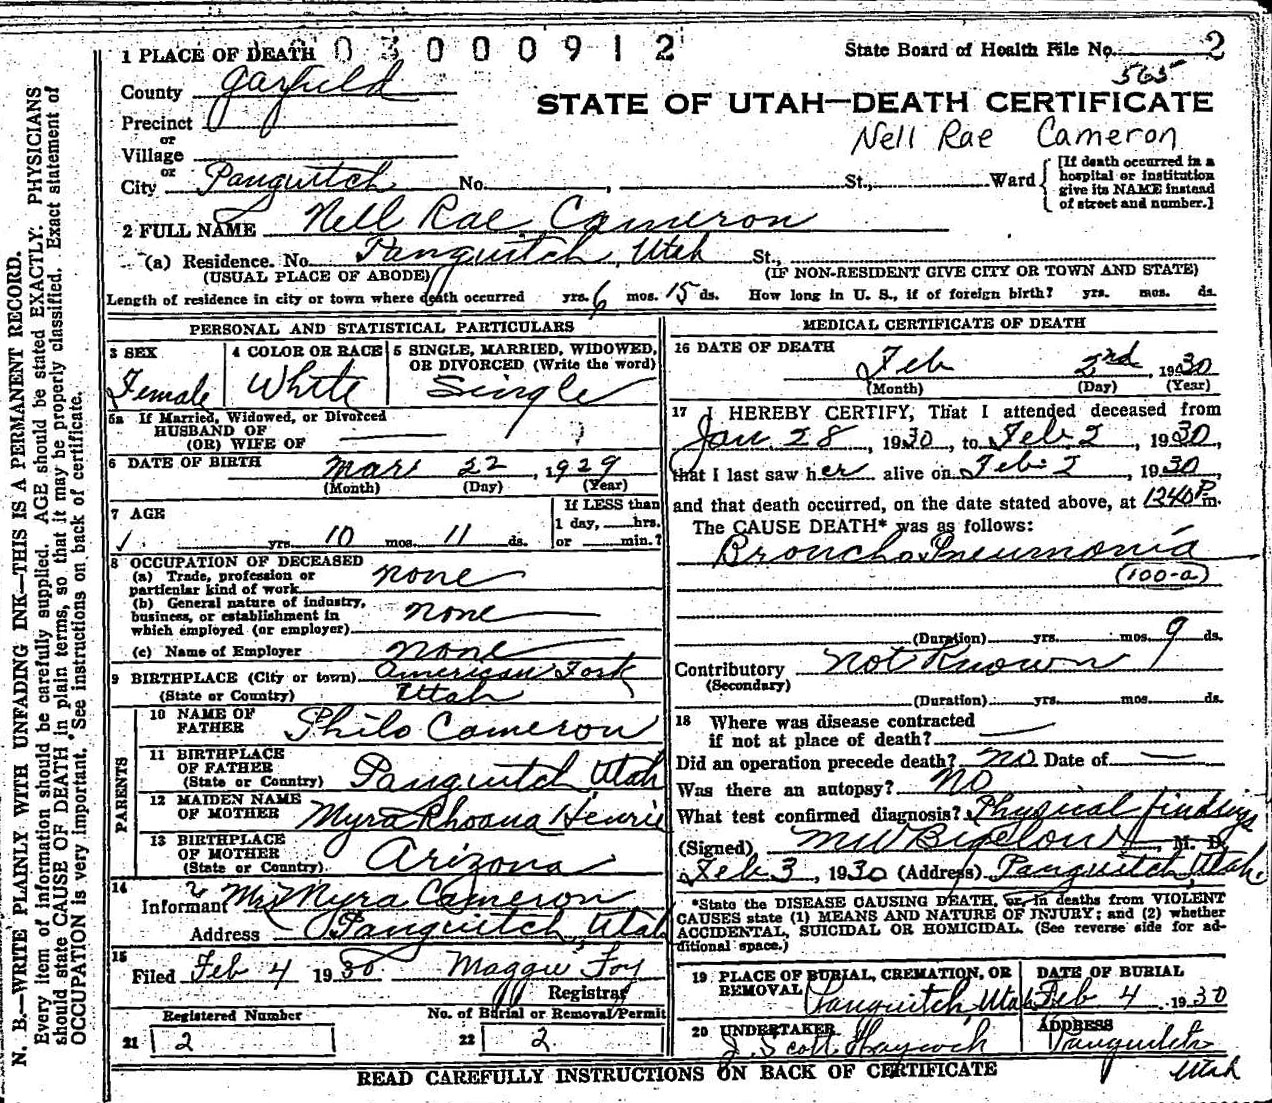 1 PLACE OF DEATH 3000912 State Board of Health File No. 2
565
County Garfield
STATE OF UTAH—DEATH CERTIFICATE
Precinct
Nell Rae Cameron
or
Village
or
City Panguitch No. , St., Ward
[If death occurred in a
hospital or institution
give its NAME instead
of street and number.]
2 FULL NAME Nell Rae Cameron
(a) Residence. No. Panguitch, Utah St.,
(USUAL PLACE OF ABODE) (IF NON-RESIDENT GIVE CITY OR TOWN AND STATE)
Length of residence in city or town where death occurred yrs. 6 mos. 15 ds. How long in U. S., if of foreign birth? yrs. mos. ds.
PERSONAL AND STATISTICAL PARTICULARS
3 SEX
Female
4 COLOR OR RACE
White
5 SINGLE, MARRIED, WIDOWED,
OR DIVORCED (Write the word)
Single
5a If Married, Widowed, or Divorced
HUSBAND OF
(OR) WIFE OF
6 DATE OF BIRTH Mar. 22, 1929
(Month) (Day) (Year)
7 AGE
yrs. 10 mos. 11 ds.
If LESS than
1 day, hrs.
or min.?
8 OCCUPATION OF DECEASED
(a) Trade, profession or
particular kind of work none
(b) General nature of industry,
business, or establishment in
which employed (or employer) none
(c) Name of Employer none
9 BIRTHPLACE (City or town) American Fork
(State or Country) Utah
PARENTS
10 NAME OF
FATHER Philo Cameron
11 BIRTHPLACE
OF FATHER
(State or Country) Panguitch, Utah
12 MAIDEN NAME
OF MOTHER Myra Rhoana Henrie
13 BIRTHPLACE
OF MOTHER
(State or Country) Arizona
14
Informant Mrs Myra Cameron
Address Panguitch, Utah
15
Filed Feb 4 1930 Maggie Foy
Registrar
Registered Number
21 2
No. of Burial or Removal Permit
22 2
MEDICAL CERTIFICATE OF DEATH
16 DATE OF DEATH
Feb 2nd, 1930
(Month) (Day) (Year)
17 I HEREBY CERTIFY, That I attended deceased from
Jan 28, 1930, to Feb 2, 1930,
that I last saw her alive on Feb 2, 1930,
and that death occurred, on the date stated above, at 1240 P m.
The CAUSE DEATH* was as follows:
Broncho Pneumonia
(100-a)
(Duration) yrs. mos. 9 ds.
Contributory Not Known
(Secondary)
(Duration) yrs. mos. ds.
18 Where was disease contracted
if not at place of death?
Did an operation precede death? no Date of
Was there an autopsy? NO
What test confirmed diagnosis? Physical findings
(Signed) MW Bigelow, M. D.
Feb 3, 1930 (Address) Panguitch, Utah.
*State the DISEASE CAUSING DEATH, or, in deaths from VIOLENT
CAUSES state (1) MEANS AND NATURE OF INJURY; and (2) whether
ACCIDENTAL, SUICIDAL OR HOMICIDAL. (See reverse side for ad-
ditional space.)
19 PLACE OF BURIAL, CREMATION, OR
REMOVAL Panguitch, Utah
DATE OF BURIAL
Feb 4 1930
20 UNDERTAKER
J. Scott Haycock
ADDRESS
Panguitch
Utah
READ CAREFULLY INSTRUCTIONS ON BACK OF CERTIFICATE
N. B.—WRITE PLAINLY WITH UNFADING INK—THIS IS A PERMANENT RECORD.
Every item of information should be carefully supplied. AGE should be stated EXACTLY. PHYSICIANS
should state CAUSE OF DEATH in plain terms, so that it may be properly classified. Exact statement of
OCCUPATION is very important. *See instructions on back of certificate.